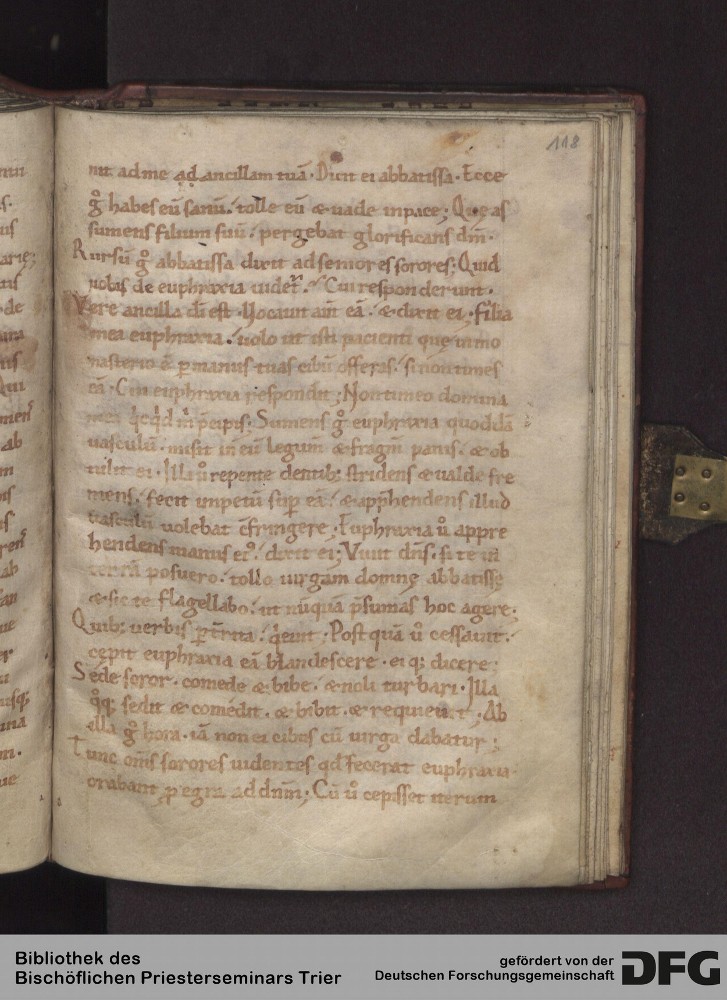 118
nit ad me ad ancillam tuā. Dicit ei abbatissa. Ecce
gͦ habes eū sanū. tolle eū & uade in pace; Quę as
sumens filium suū. pergebat glorificans dm̄.
Rursū gͦ abbatissa dixit ad seniores sorores; Quid
uobis de euphraxia uidet᷑. Cui responderunt.
Vere ancilla dī est. Uocauit aūt eā. & dixit ei. Filia
mea euphraxia. uolo ut isti pacienti quę in mo
nasterio ē p manus tuas cibū offeras. si non times
eā. Cui euphraxia respondit; Non timeo domina
mea qͥcqͥd m̄ pcipis; Sumens gͦ euphraxia quoddā
uasculū. misit in eū legum̄ & fragm̄ panis. & ob
tulit ei. Illa u̇ repente dentib; stridens & ualde fre
mens. fecit impetū sup eā. & app̄hendens illud
uasculū uolebat c̄fringere; Euphraxia u̇ appre
hendens manus eiꝰ. dixit ei; Viuit dn̄s. si te in
terrā posuero. tollo uirgam domnę abbatissę
& sic te flagellabo. ut nūquā p̄sumas hoc agere;
Quib; uerbis p̄t̄rita. qͥeuit; Postquā u̇ cessauit.
cepit euphraxia eā blandescere. eiq; dicere;
Sede soror. comede & bibe. & noli turbari. Illa
qͦq; sedit & comedit. & bibit. & requieuit; Ab
illa gͦ hora. iā non ei cibus cū uirga dabatur;
Tunc om̄s sorores uidentes qd fecerat euphraxia.
orabant p egra ad dn̄m; Cū u̇ cepisset iterum
Bibliothek des
Bischöflichen Priesterseminars Trier
gefördert von der
Deutschen Forschungsgemeinschaft
DFG